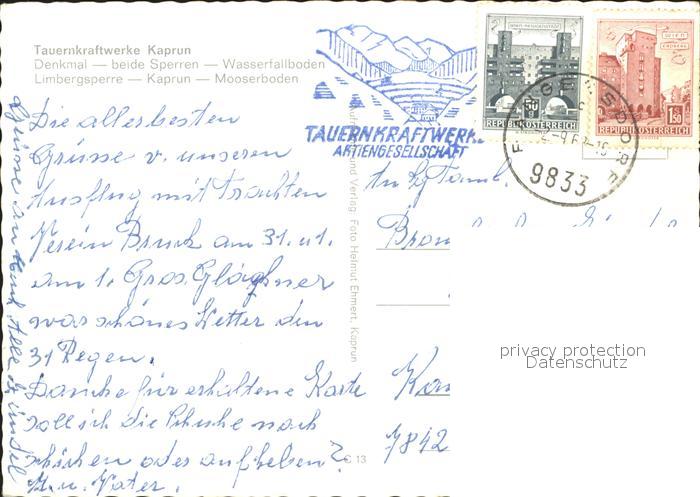 Tauernkraftwerke Kaprun
Denkmal — beide Sperren — Wasserfallboden
Limbergsperre — Kaprun — Mooserboden
TAUERNKRAFTWERKE
AKTIENGESELLSCHAFT
REPUBLIK ÖSTERREICH
WIEN
ERDBERG
1.50
REPUBLIK ÖSTERREICH
9833
Die allerbesten
Grüsse v. unseren
Ausflug mit Trachten
Verein Bruck am 31. u. 1.
am 1. Gros Glogner
war schönes Wetter den
31 Regen.
Danke für erhaltene Karte
soll ich die Schuhe noch
schicken oder aufheben?
M. u. Vater.
Grüsse an Euch Alle
An Fam.
7842
und Verlag Foto Helmut Ehmert, Kaprun
C 13
privacy protection
Datenschutz